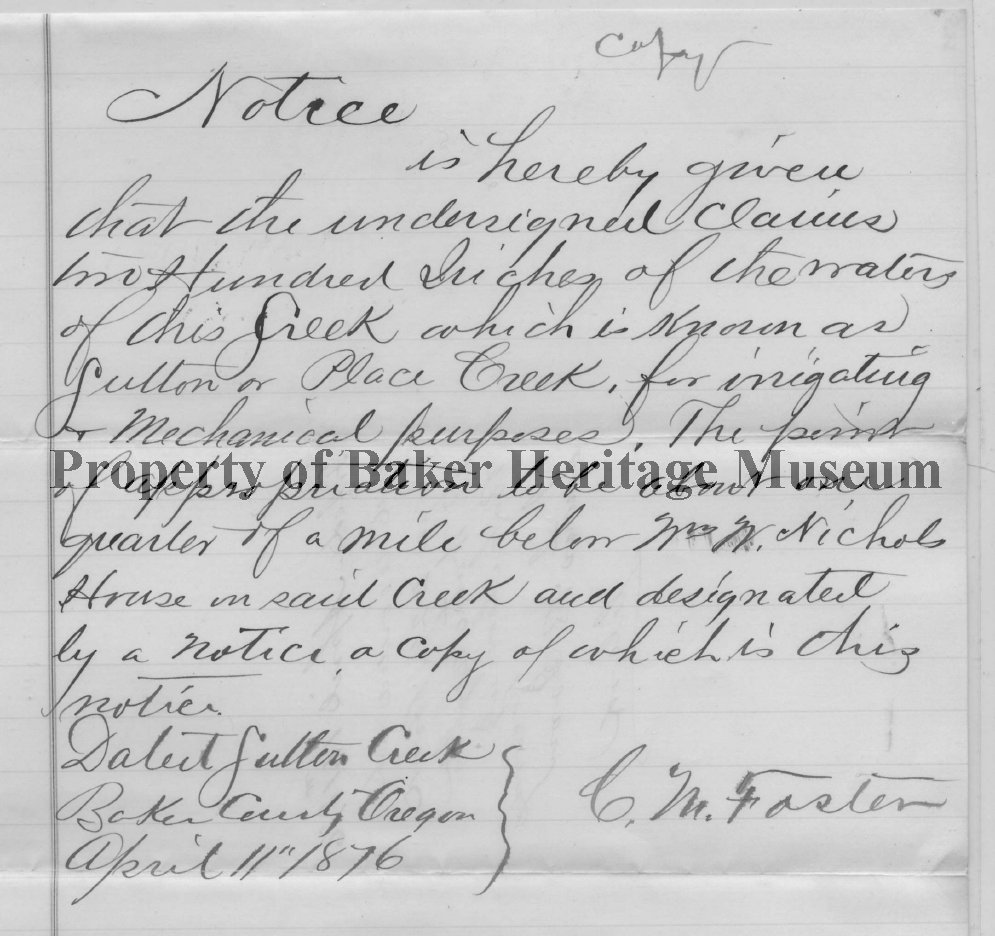 Copy
Notice
is hereby given
that the undersigned claims
two Hundred Inches of the waters
of this Creek which is known as
Sutton or Place Creek, for irrigating
or Mechanical purposes. The point
Property of Baker Heritage Museum
of appropriation to be about one
quarter of a mile below Wm W. Nichols
House on said Creek and designated
by a notice, a copy of which is this
notice.
Dated Sutton Creek
Baker County Oregon
April 11" 1876
C. M. Foster